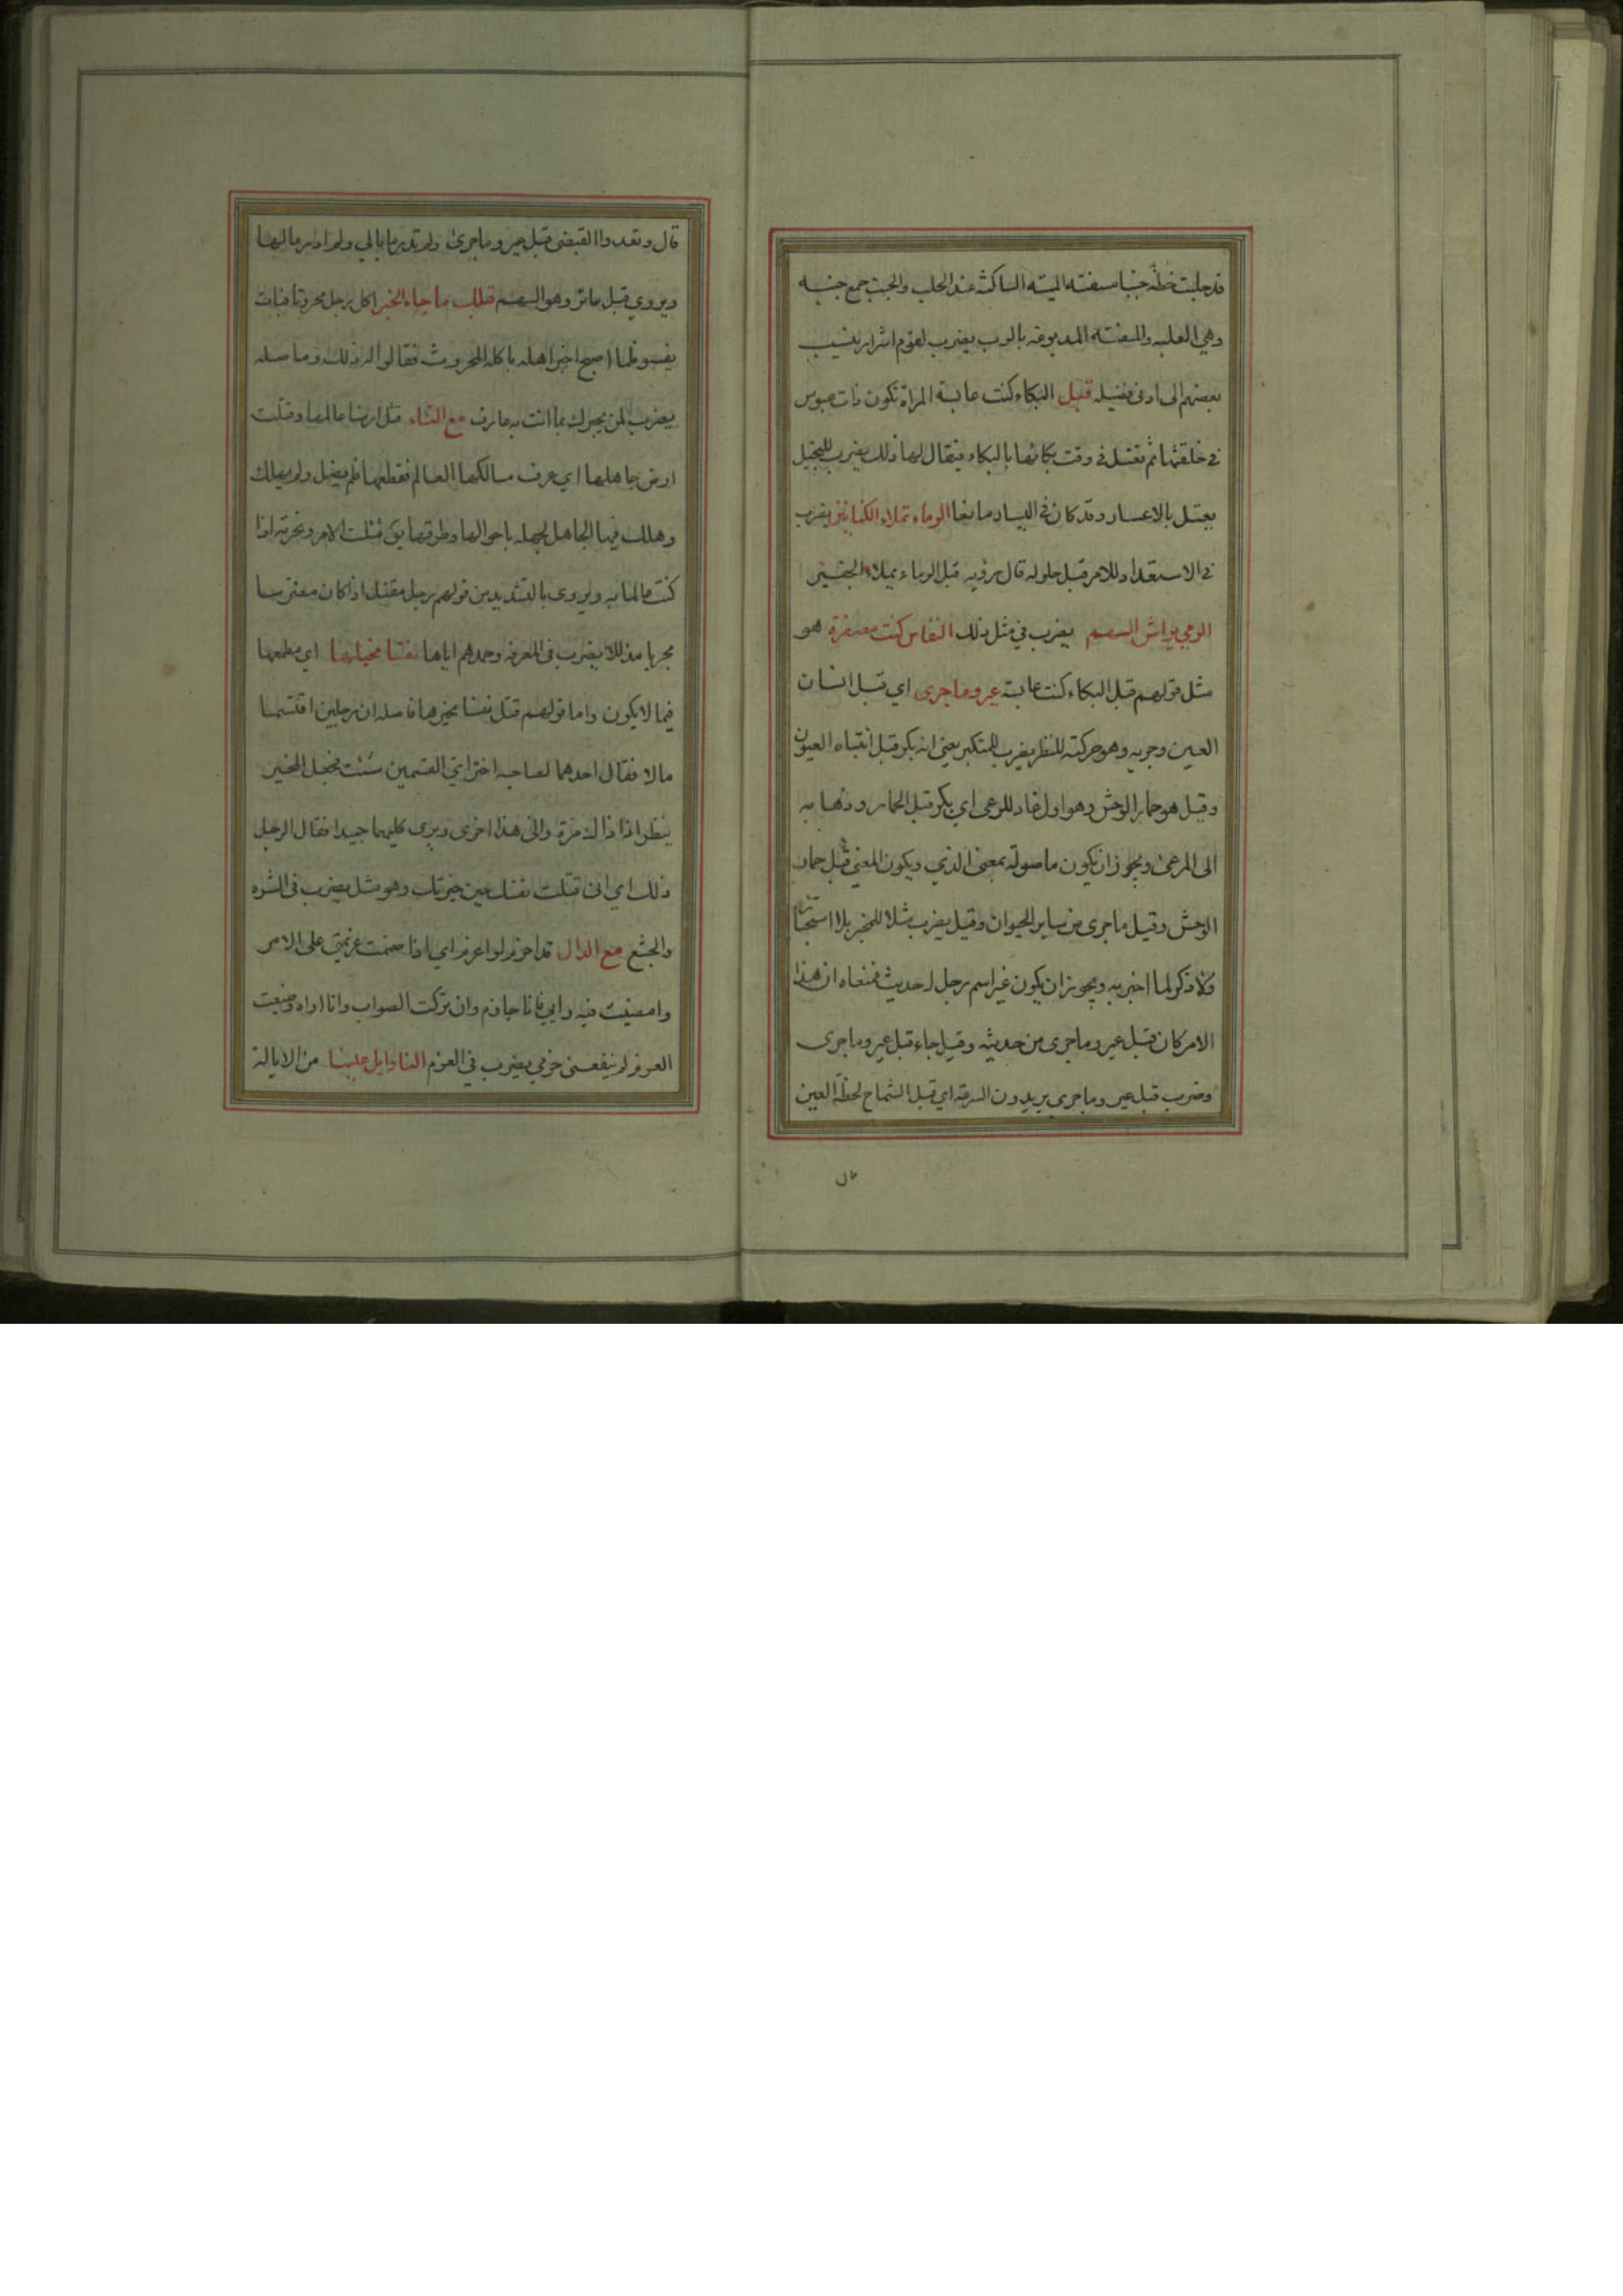 قد حلبت خطة جنبا مسفته الميته الساكنة عند الحلب والجنب جمع جنبه
وهي العلبه والمسفته المدبوغه بالرب يضرب لقوم اشرار ينسب
بعضهم الى ادنى فضيله قبل البكاء كنت عابسة المراة تكون ذات عبوس
في خلقتها ثم تعتل في وقت بكائها بالبكاء فيقال لها ذلك يضرب للبخيل
يعتل بالاعسار وقد كان في اليسار مانعا الرماء تملاء الكنائن يضرب
في الاستعداد للامر قبل حلوله قال رؤبه قبل الرماء يملاء الجفير
الرمي يراش السهم يضرب في مثل ذلك النفاس كنت مصفرة هو
مثل قولهم قبل البكاء كنت عابسة عير وما جرى اي قبل انسان
العين وجريه وهو حركته للنظر يضرب للمتكبر يعني انه بكر قبل انتباه العيون
وقيل هو حمار الوحش وهو اول غاد للرعي اي بكر قبل الحمار وذهابه
الى المرعى ويجوز ان يكون ما صولة بمعنى الذي ويكون المعنى قبل حمار
الوحش وقيل ما جرى من ساير الحيوان وقيل يضرب مثلا للمخبر بلا
ولا ذكر لما اخبر به ويجوز ان يكون عير اسم رجل له حديث فمعناه ان هذا
الامر كان قبل عير وما جرى من حديثه وقيل جاء قبل عير وما جرى
وضرب قبل عير وما جرى يريدون السرعة اي قبل الشماخ لحظة العين
قال
قال وتعدوا القبضى قبل عير وما جرى ولم تدر ما بالي ولم ادر ما لها
ويروى قبل عائر وهو السهم قبلك ما جاء الخبر اكل رجل محروتا فبات
يفسو فلما اصبح اخبر اهله باكله المحروث فقالوا له ذلك وما صله
يضرب لمن يخبرك بما انت به عارف مع التاء قتل ارضا عالمها وقتلت
ارض جاهلها اي عرف مسالكها العالم فقطعها فلم يضل ولم يهلك
وهلك فيها الجاهل لجهله باحوالها وطرقها يق قتلت الامر ونحرته اذا
كنت عالما به ويروى بالتشديد من قولهم رجل مقتل اذا كان مضرسا
مجربا مذللا يضرب في المعرفه وحمدهم اياها نفسا مخياتها اي مطمعها
فيما لا يكون واما قولهم قتل نفسا مخيرها فاصله ان رجلين اقتسما
مالا فقال احدهما لصاحبه اختر اي القسمين شئت فجعل المخير
ينظر اذا ذاك مرة والى هذا اخرى ويرى كليهما جيدا فقال الرجل
ذلك اي انى قتلت نفسك حين خيرتك وهو مثل يضرب في الشره
والجشع مع الدال قد احزم لو اعزم اي اذا صحت عزيمتي على الامر
وامضيت فيه رايي فانا حازم وان تركت الصواب وانا اراه وضيعت
العزم لم ينفعني حزمي يضرب في العزم النا وايل علينا من الايالة